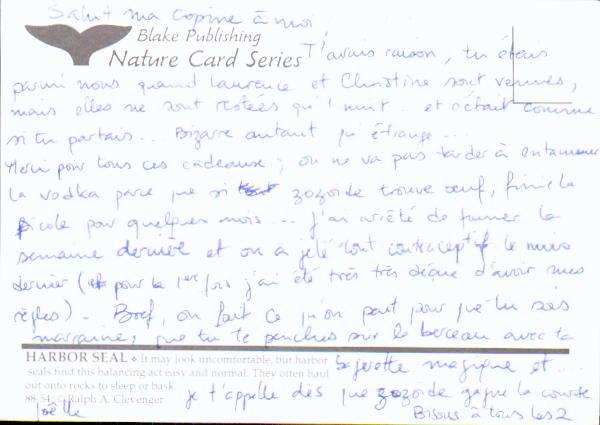 Salut ma copine à moi,
Blake Publishing
Nature Card Series
T'avais raison, tu étais
parmi nous quand Laurence et Christine sont venues,
mais elles ne sont restées qu'1 nuit. et c'était comme
si tu partais... Bizarre autant qu'étrange...
Merci pour tous ces cadeaux ; on ne va pas tarder à entamer
la vodka parce que si zozoïde trouve oeuf, finie la
picole pour quelques mois... J'ai arrêté de fumer la
semaine dernière et on a jeté tout contraceptif le mois
dernier (pour la 1ère fois j'ai été très très déçue d'avoir mes
règles). Bref, on fait ce qu'on peut pour que tu sois
marraine, que tu te penches sur le berceau avec ta
HARBOR SEAL ❖ It may look uncomfortable, but harbor
seals find this balancing act easy and normal. They often haul
out onto rocks to sleep or bask.
88-54 © Ralph A. Clevenger
baguette magique et...
je t'appelle dès que zozoïde gagne la course.
Bisous à tous les 2
Joëlle